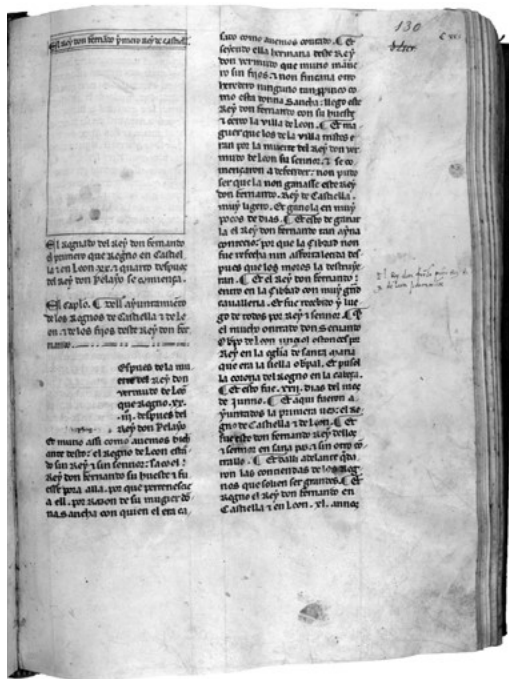 El Rey don fernando primero Rey de castiella
El Regnado del Rey don fernando
el primero que Regno en Castiel
la ⁊ en Leon .xx. ⁊ quarto despues
del Rey don Pelayo se comiença.
El capło. ¶ del ayuntamiento
de los Regnos de Castiella ⁊ de le
on. ⁊ de los fijos deste Rey don fer
nando.
Espues de la mu
erte del Rey don
vermudo de Leo
que Regno .xx.
.iij. despues del
Rey don Pelayo
Et muno assi como auemos dich
ante desto: el Regno de Leon esta
do sin Rey ⁊ sin sennor: saco el
Rey don fernando su hueste ⁊ fu
esse pora alla. por que pertenesce
a ell. por razon de su mugier do
na sancha con quien el era ca
sado como auemos contado. ¶ Et
seyendo ella hermana deste Rey
don vermudo que murio mançe
bo sin fijos. ⁊ non fincaua otro
heredero ninguno tan propinco co
mo esta donna Sancha: llego este
Rey don fernando con su hueste
⁊ cerco la villa de Leon. ¶ Et ma
guer que los de la villa tristes e
ran por la muerte del Rey don ver
mudo de Leon su sennor. ⁊ se co
mençaron a defender: non pudo
ser que la non ganasse este Rey
don fernando. Rey de Castiella.
muy ligero. Et ganola en muy
pocos de dias. ¶ Et esto de ganar
la el Rey don fernando tan ayna
contecio: por que la Cibdad non
fue refecha nin afortalesda des
pues que los moros la destruye
ran. ¶ Et el Rey don fernando:
entro en la Cibdad con muy grand
caualleria. Et fue recebido ⁊ lue
go de todos por Rey ⁊ sennor. ¶ Et
el mucho onrrado don Seruando
Obpo de Leon ungol estonces por
Rey en la eglia de santa maria
que era la siella obpal. Et pusol
la corona del Regno en la cabeça.
¶ Et esto fue .xxij. dias del mes
de Junno. ¶ Et aqui fueron a
yuntados la primera uez: el Re
gno de Castiella ⁊ de Leon. ¶ Et
fue este don fernando Rey dellos
⁊ sennor en sana paz. ⁊ sin otro co
trallo. ¶ Et dalli adelante qda
ron las contiendas de los Reg
nos que solien ser grandes. ¶ Et
Regno el Rey don fernando en
Castiella ⁊ en Leon .xl. annos
130